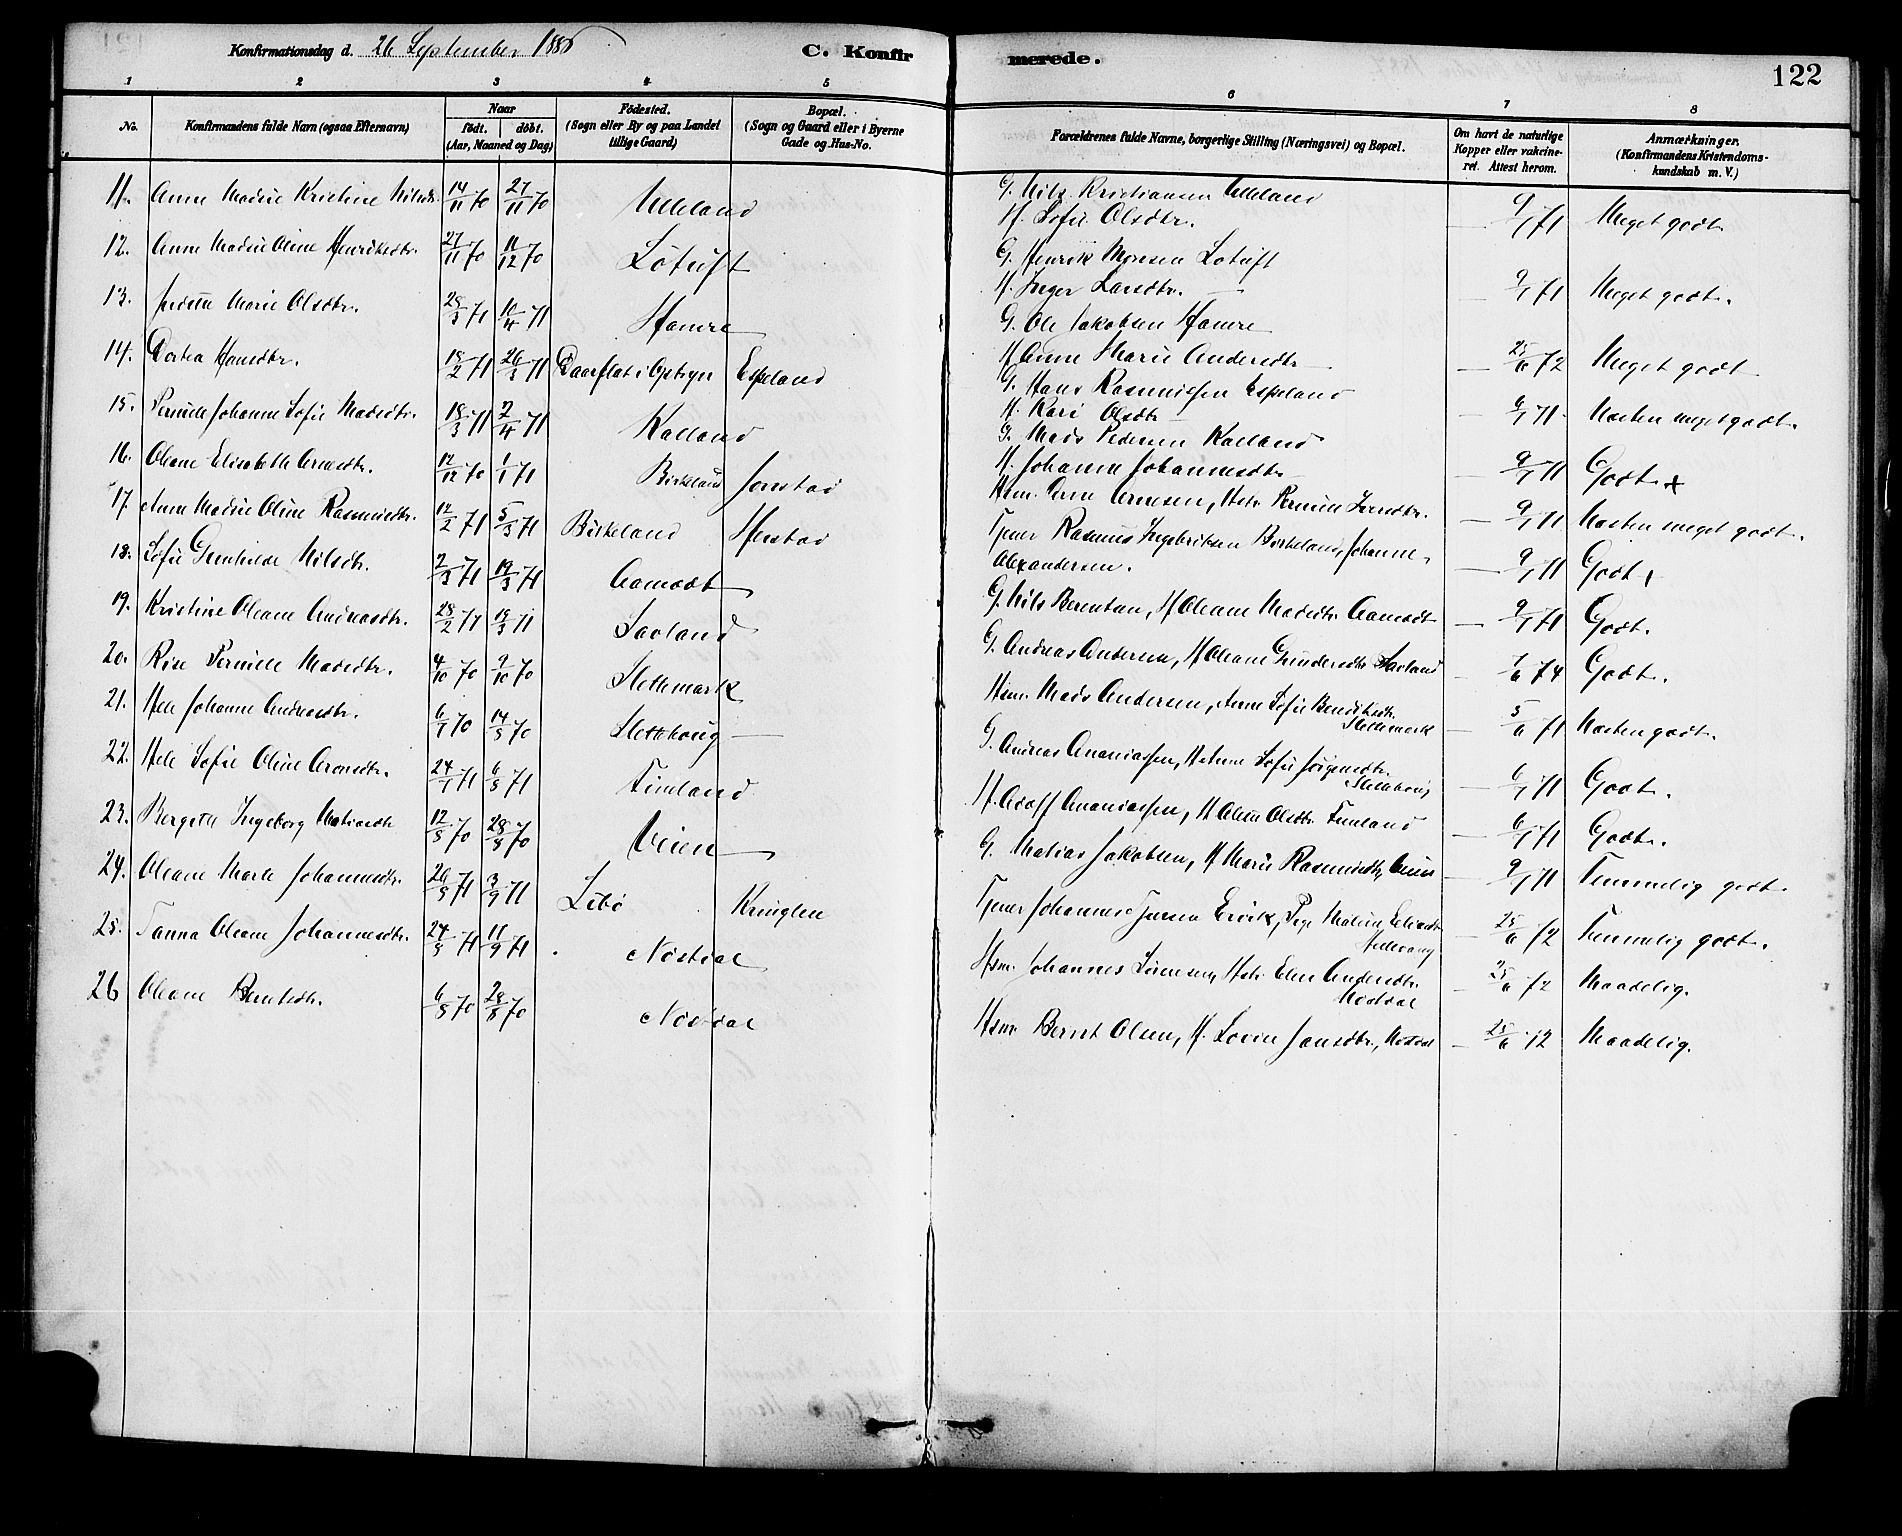 Konfirmationsdag d. 26 September 1886
C. Konfirmerede.
122
1 2 3 4 5 6 7 8
No.
Konfirmandens fulde Navn (ogsaa Efternavn)
Naar
födt. döbt.
(Aar, Maaned og Dag)
Födested.
(Sogn eller By og paa Landet
tillige Gaard)
Bopæl.
(Sogn og Gaard eller i Byerne
Gade og Hus-No.
Forældrenes fulde Navne, borgerlige Stilling (Næringsvei) og Bopæl.
Om havt de naturlige
Kopper eller vakcine-
ret. Attest herom.
Anmærkninger.
(Konfirmandens Kristendoms-
kundskab m. V.)
11. Anne Madine Kristine Nilsdtr. 14/11 70 27/11 70 Ulleland G. Nils Kristiansen Ulleland
H. Sofie Olsdtr. — 9/1 71 Meget godt
12. Anne Madine Oline Henriksdtr. 27/11 70 11/12 70 Lotuft G. Henrik Monsen Lotuft
H. Inger Larsdtr. — 9/1 71 Meget godt.
13. Marie Olsdtr. 28/3 71 10/4 71 Hamre G. Ole Jakobsen Hamre
H. Anne Marie Andersdtr — 25/6 72 Meget godt
14. Dortea Hansdtr. 18/2 71 26/3 71 Opstryn Espeland G. Hans Rasmussen Espeland
H. Kari Olsdtr — 6/1 71 Næsten meget godt.
15. Pernille Johanne Sofie Madsdtr. 18/3 71 2/4 71 Kalland G. Mads Pedersen Kalland
H. Johanne Johannesdtr — 9/1 71 Godt. x
16. Oleane Elisabeth Arnesdtr. 12/12 70 1/1 71 Birkeland Jonstad
Hsm. Arnesen, Pernille — 9/1 71 Næsten meget godt.
17. Anne Madine Oline Rasmusdtr. 12/2 71 5/3 71 Birkeland Henstad Tjener Rasmus Ingebriktsen Birkeland, Johanne
Alexandersen. — 9/1 71 Godt
18. Sofie Gunhilde Nilsdtr. 2/3 71 19/3 71 Aamodt
G. Nils Berentsen, H. Oleane Madsdtr Aamodt — 9/1 71 Godt.
19. Kristine Oleane Andreasdtr. 28/2 71 19/3 71 Savland
G. Andreas Andersen, H. Oleane Gundersdtr Savland — 7/6 74 Godt.
20. Pernille Madsdtr. 4/10 70 9/10 70 Slettemark
Hsm. Mads Andersen, Anne Sofie Bendiksdtr.
Slettemark — 5/6 71 Næsten godt.
21. Johanne Andreasdtr. 6/7 70 14/8 70 Slettehoug
G. Andreas Ananiassen, H. Anne Sofie Jörgensdtr.
Slettehoug — 6/1 71 Godt.
22. Sofie Oline Aronsdtr. 24/1 71 6/3 71 Timland
Ananiassen, H. Oline Olsdtr Timland — 6/1 71 Godt.
23. Bergitte Ingeborg Matiasdtr 12/8 70 28/8 70 Veien
G. Matias Jakobsen, H. Marie Rasmusdtr, Veien — 9/1 71 Temmelig godt.
24. Oleane Marte Johannesdtr. 26/8 71 3/9 71 Lebö Kringlen
Tjener Johannes Ervik, Pige Malene
— 25/6 72 Temmelig godt.
25. Tanna Oleane Johannesdtr. 24/8 71 11/9 71 Nöstdal
Hsm. Johannes Sörensen, Elen Andersdtr.
Nöstdal — 25/6 72 Maadelig.
26 Oleane Berntsdtr. 6/8 70 28/8 70 Nöstdal
Hsm. Bernt Olsen, H. Lovise Jansdtr., Nöstdal — 25/6 72 Maadelig.